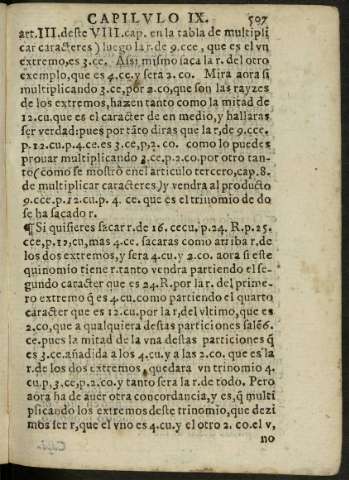 CAPILVLO IX. 507
art.III.deste VIII.cap. en la tabla de multipli
car caracteres) luego la r.de 9.cce, que es el vn
extremo, es 3.ce. Assi mismo saca la r. del otro
exemplo, que es 4.ce.y sera 2.co. Mira aora si
multiplicando 3.ce, por 2.co, que son las rayzes
de los extremos, hazen tanto como la mitad de
12.cu.que es el caracter de en medio, y hallaras
ser verdad: pues por tãto diras que la r, de 9.cce.
p.12.cu.p.4.ce. es 3.ce, p, 2.co. como lo puedes
prouar multiplicando 3.ce, p. 2.co. por otro tan-
to (como se mostrò en el articulo tercero, cap. 8.
de multiplicar caracteres) y vendra al producto
9.cce.p.12.cu.p. 4. ce. que es el trinomio de do
se ha sacado r.
¶ Si quisieres sacar r. de 16. cecu, p. 24. R. p. 25.
cce, p, 12, cu, mas 4.ce. sacaras como arriba r, de
los dos extremos, y sera 4.cu. y 2.co. aora si este
quinomio tiene r. tanto vendra partiendo el se-
gundo caracter que es 24.R. por la r. del prime-
ro extremo q̃ es 4.cu. como partiendo el quarto
caracter que es 12.cu. por la r, del vltimo, que es
2.co, que a qualquiera destas particiones salẽ 6.
ce. pues la mitad de la vna destas particiones q̃
es 3.ce. añadida a los 4.cu. y a las 2.co. que es la
r. de los dos extremos, quedara vn trinomio 4.
cu, p, 3, ce, p, 2.co, y tanto sera la r. de todo. Pero
aora ha de auer otra concordancia, y es, q̃ multi
plicando los extremos deste trinomio, que dezi
mos ser r, que el vno es 4.cu. y el otro 2. co. el v,
no